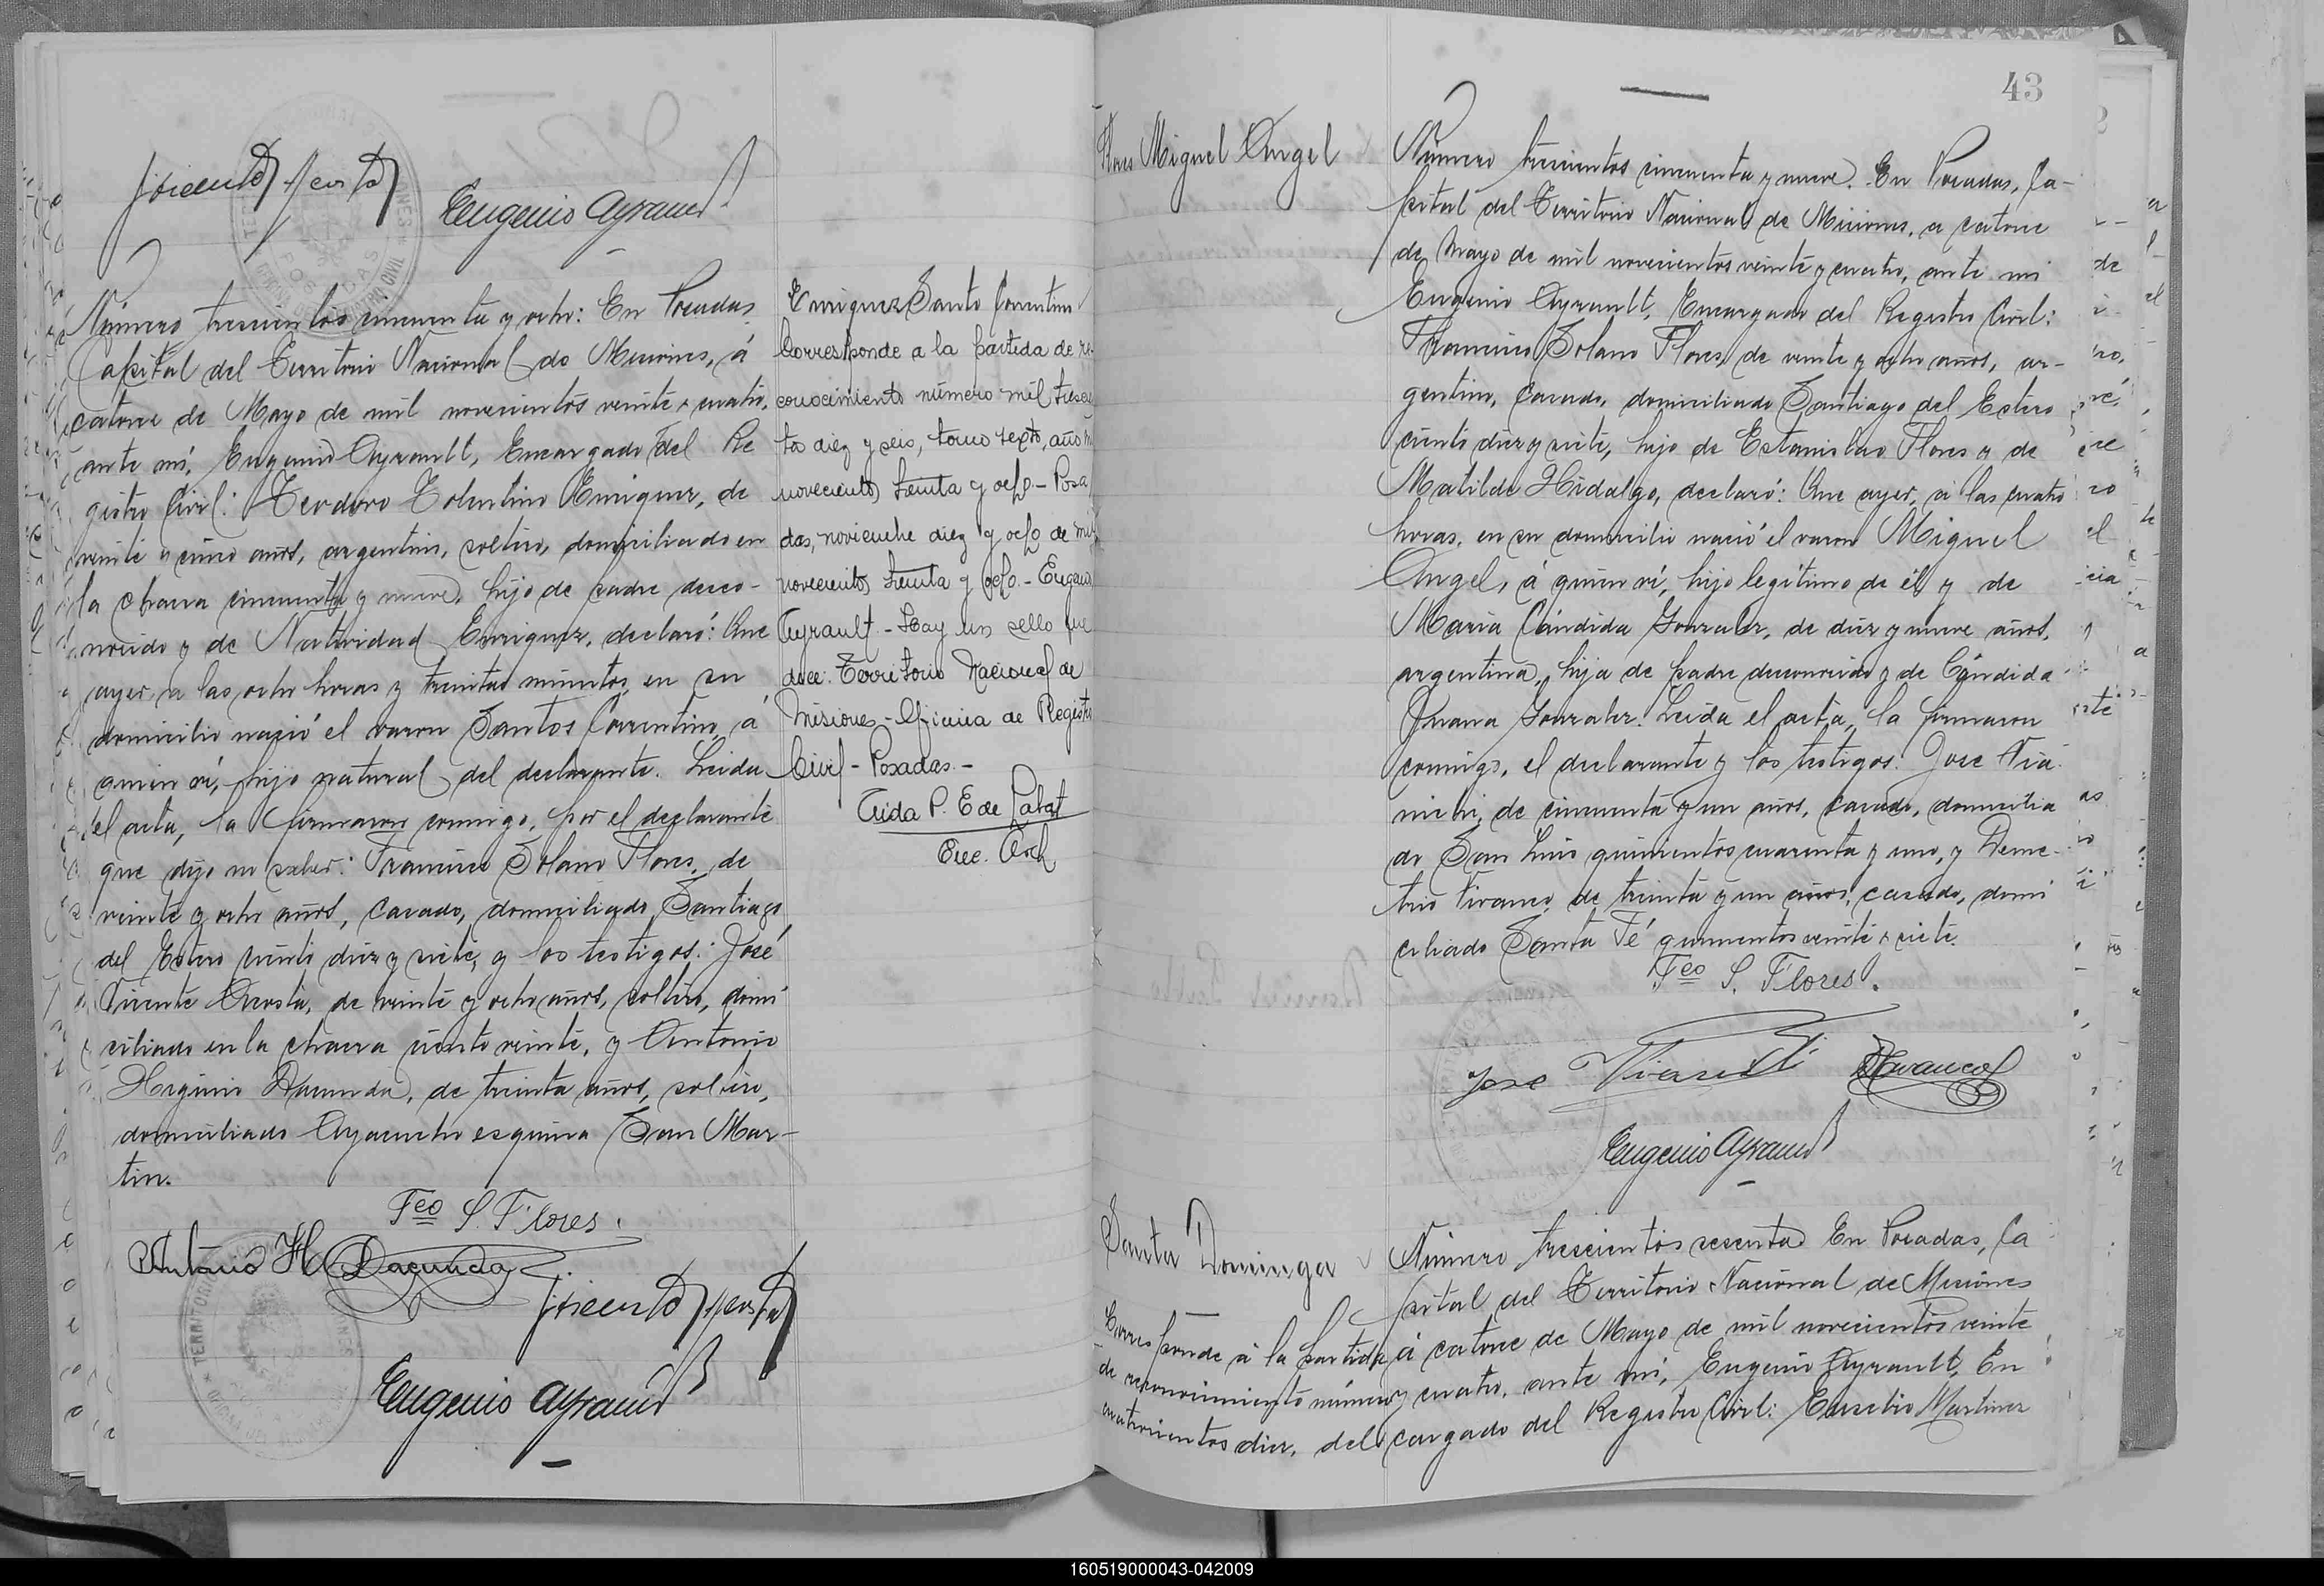 Vicente Acosta
Eugenio Ayrault
Número trescientos cincuenta y ocho: En Posadas
Capital del Territorio Nacional de Misiones, á
catorce de Mayo de mil novecientos veinte y cuatro,
ante mí, Eugenio Ayrault, Encargado del Re
gistro Civil: Teodoro Tolentino Enriquez, de
veinte y cinco años, argentino, soltero, domiciliado en
la chacra cincuenta y nueve, hijo de padre desco-
nocido y de Natividad Enriquez, declaró: Que
ayer, a las ocho horas y treinta minutos, en su
domicilio nació el varon Santos Correntino, á
quien ví, hijo natural del declarante. Leida
el acta, la firmaron conmigo, por el declarante
que dijo no saber: Francisco Solano Flores, de
veinte y ocho años, casado, domiciliado Santiago
del Estero ciento diez y siete, y los testigos: José
Vicente Acosta, de veinte y ocho años, soltero, domi
ciliado en la chacra ciento veinte, y Antonio
Herginio Dacunda, de treinta años, soltero,
domiciliado Ayacucho esquina San Mar-
tin.
Fco S. Flores.
Antonio H Dacunda
Vicente Acosta
Eugenio Ayrault
Enriquez Santo Correntino
Corresponde a la partida de re-
conocimiento número mil trescien
to diez y seis, tomo sexto, año mil
novecientos treinta y ocho - Posa
das, noviembre diez y ocho de mil
novecientos treinta y ocho. - Eugenio
Ayrault - Hay un sello que
dice: Territorio Nacional de
Misiones - Oficina de Registro
Civil - Posadas. -
Enc. Arch
43
Flores Miguel Angel
Número trescientos cincuenta y nueve. En Posadas, Ca-
pital del Territorio Nacional de Misiones, a catorce
de Mayo de mil novecientos veinte y cuatro, ante mi
Eugenio Ayrault, Encargado del Registro Civil:
Francisco Solano Flores, de veinte y ocho años, ar-
gentino, casado, domiciliado Santiago del Estero
ciento diez y siete, hijo de Estanislao Flores y de
Matilde Hidalgo, declaró: Que ayer, a las cuatro
horas, en su domicilio nació el varon Miguel
Angel, á quien ví, hijo legítimo de él y de
Maria Cándida Gonzalez, de diez y nueve años,
argentina, hija de padre desconocido y de Cándida
Juana Gonzalez. Leida el acta, la firmaron
conmigo, el declarante y los testigos: Jose
de cincuenta y un años, casado, domicilia
do San Luis quinientos cuarenta y uno, y Deme-
trio Vivanco, de treinta y un años, casado, domi
ciliado Santa Fé quinientos veinte y siete.
Fco S. Flores.
Jose
DVivanco
Eugenio Ayrault
Santa Dominga
Corresponde á la partida
de reconocimiento número
cuatrocientos diez, del
Número trescientos sesenta En Posadas, Ca
pital del Territorio Nacional de Misiones
á catorce de Mayo de mil novecientos veinte
y cuatro, ante mí, Eugenio Ayrault, En
cargado del Registro Civil: Eusebio Martinez
160519000043-042009